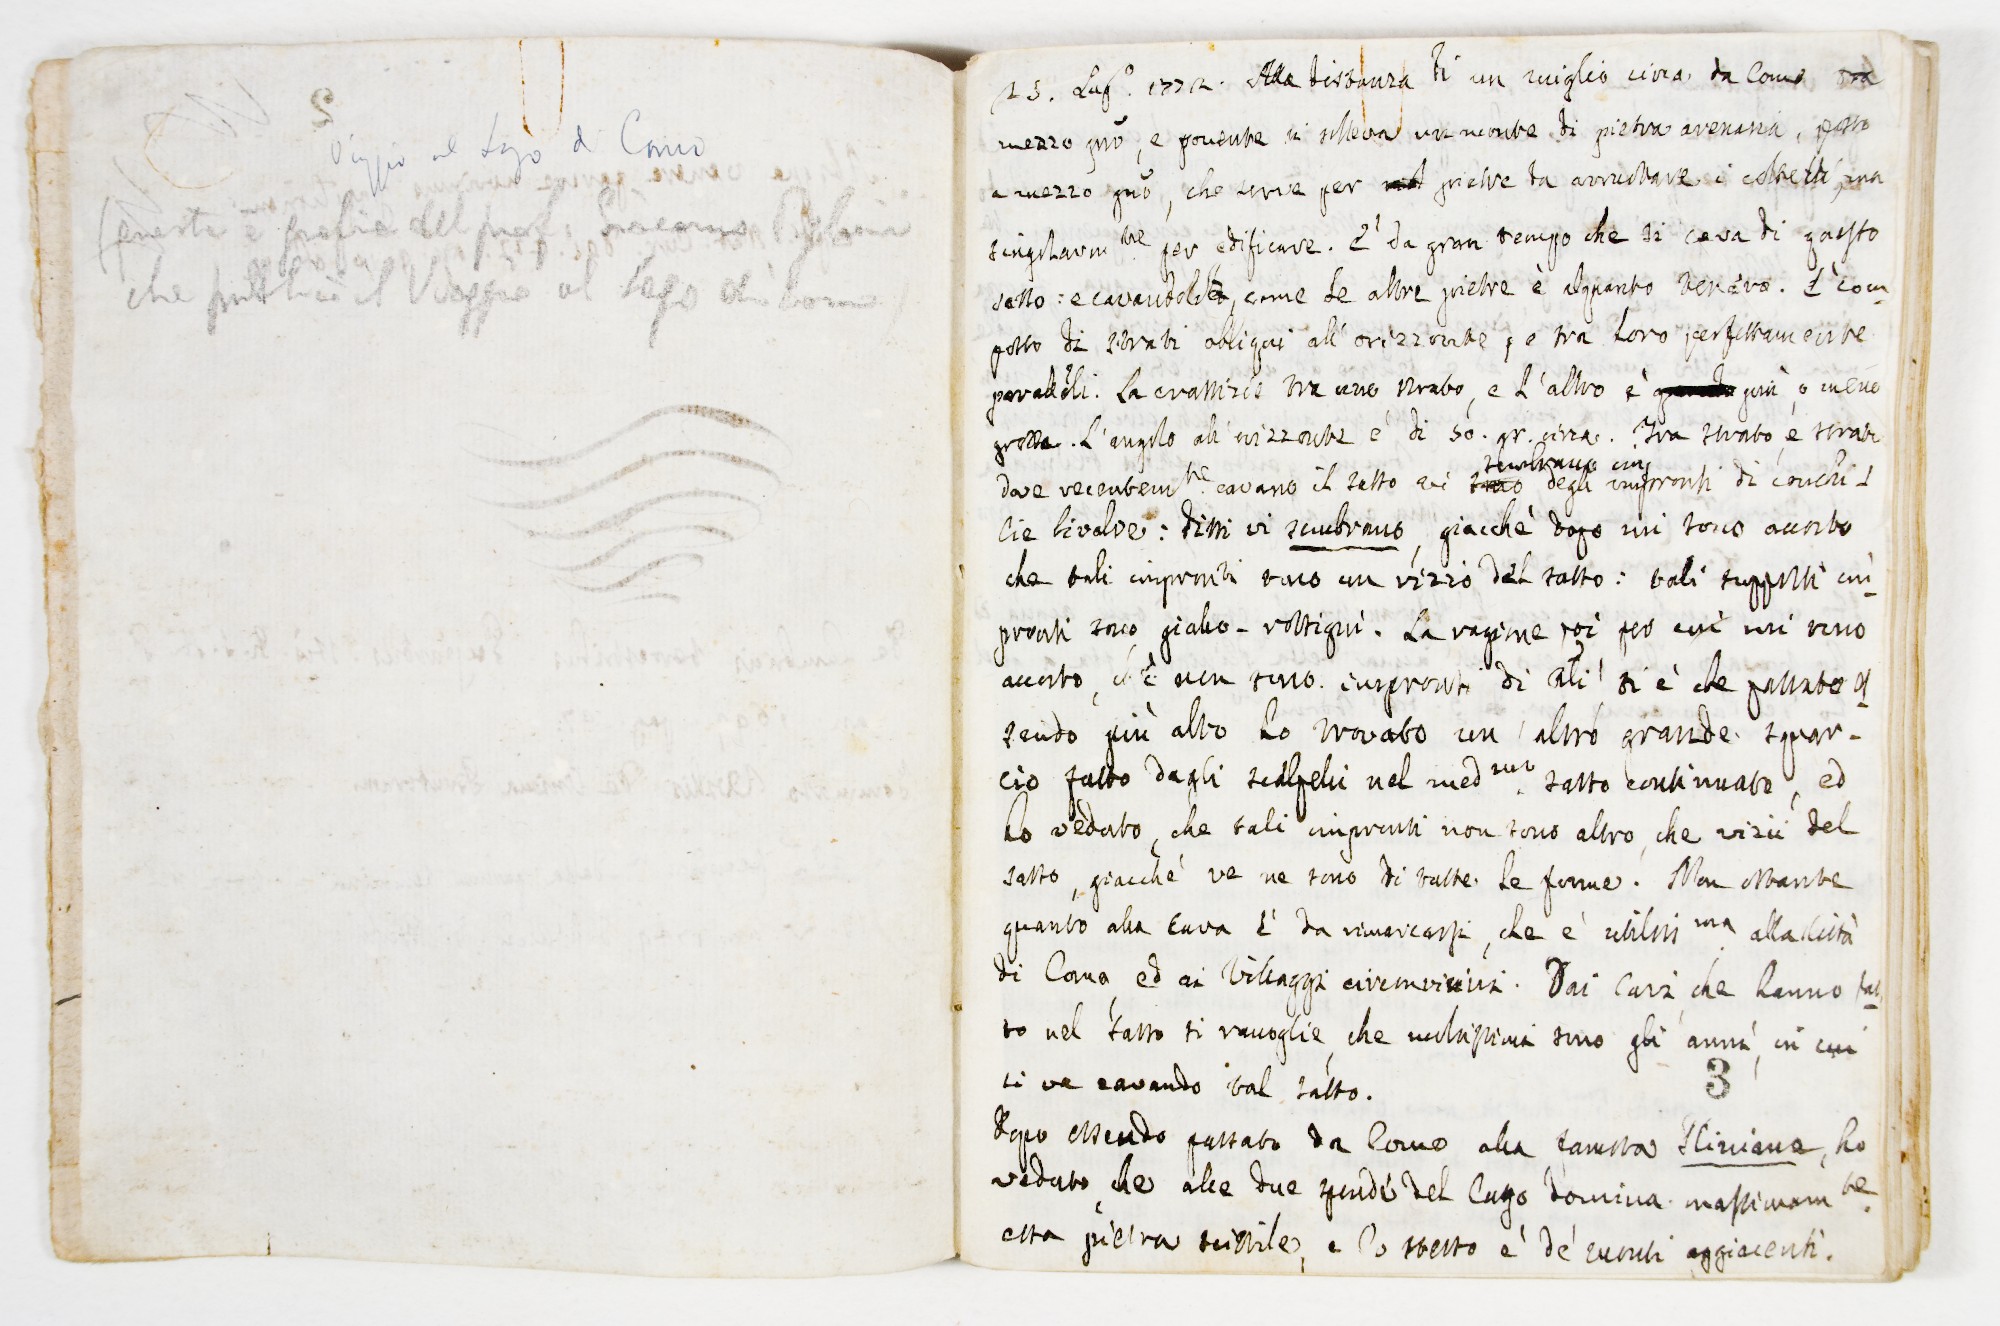 2
Viaggio al Lago di Como
(questa è grafia del prof. Giacomo
che pubblicò il Viaggio al Lago di Como
25. Lug.º 1772. Alla distanza di un miglio circa da Como tra
mezzo giõ, e ponente si solleva un monte di pietra arenaria, posto
a mezzo giõ, che serve per pietre da arruottare i coltelli, ma
singolarm.te per edificare. E' da gran tempo che si cava di questo
sasso: e cavandolo, come le altre pietre è alquanto tenero. E' com-
posto di strati obliqui all' orizzonte, e tra loro perfettamente
paralleli. La crassizie tra uno strato, e l'altro è più, o meno
grossa. L'angolo all' orizzonte e' di 50. gr. circa. Tra strato, e strato
sembrano im
dove recentem.te cavano il sasso vi degli impronti di conchi-
lie bivalve: dissi vi sembrano, giacchè dopo mi sono accorto
che tali impronti sono un vizio del sasso: tali supposti im-
pronti sono giallo-rossigni. La ragione poi per cui mi sono
accorto, che non sono impronti di tali si è che passato es-
sendo più alto ho trovato un' altro grande squar-
cio fatto dagli scalpelli nel med.mo sasso continuato, ed
ho veduto, che tali impronti non sono altro, che vizii del
sasso, giacchè ve ne sono di tutte le forme. Non ostante
quanto alla cava è da rimarcarsi, che è utiliss.ma alla Città
di Como ed ai Villaggi circonvicini. Dai cavi, che hanno fat-
to nel sasso si raccoglie, che moltissimi sono gli anni, in cui
si va cavando tal sasso.
3
Dopo essendo passato da Como alla famosa Pliniana, ho
veduto, che alle due sponde del Lago domina massimam.te
essa pietra scissile, e lo stesso è de' monti aggiacenti.